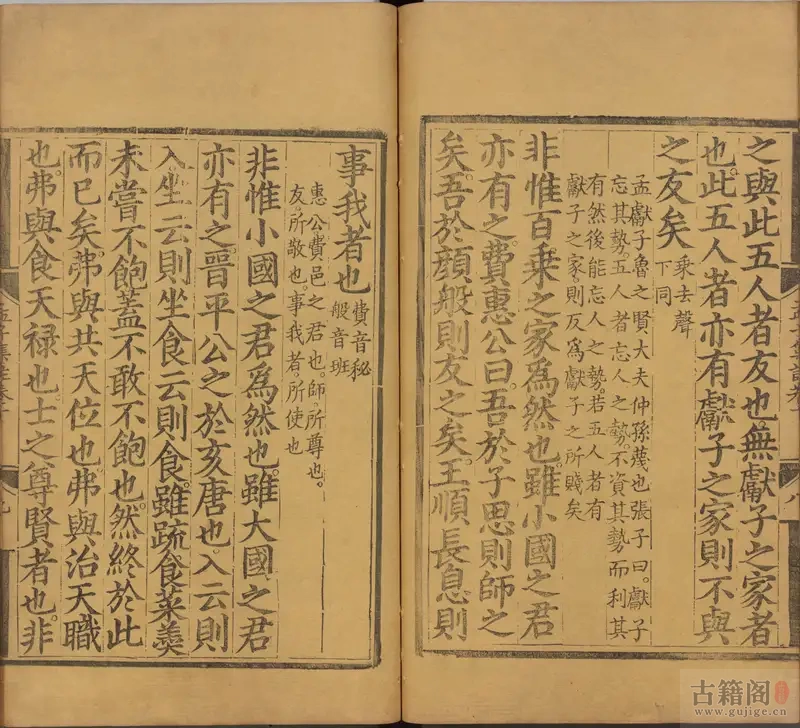 之與此五人者友也無獻子之家者
也。此五人者亦有獻子之家則不與
之友矣 乘去聲
下同
孟獻子魯之賢大夫仲孫蔑也張子曰。獻子
忘其勢。五人者忘人之勢。不資其勢而利其
有然後能忘人之勢。若五人者有
獻子之家則反爲獻子之所賤矣
非惟百乘之家爲然也。雖小國之君
亦有之。費惠公曰。吾於子思則師之
矣。吾於顔般則友之矣。王順長息則
事我者也 費音秘
般音班
惠公費邑之君也。師。所尊也。
友。所敬也。事我者。所使也
非惟小國之君爲然也。雖大國之君
亦有之。晉平公之於亥唐也。入云則
入坐云則坐食云則食。雖疏食菜羹
未嘗不飽蓋不敢不飽也。然終於此
而已矣。弗與共天位也。弗與治天職
也。弗與食天禄也。士之尊賢者也。非
孟子集註卷十
八
孟子集註卷十
九
古籍阁
www.gujige.cn